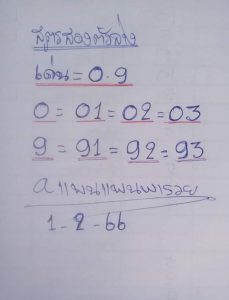 สูตรสองตัวล่าง
เด่น = 0.9
0 = 01 = 02 = 03
9 = 91 = 92 = 93
a แพนแพนพารวย
1-2-66